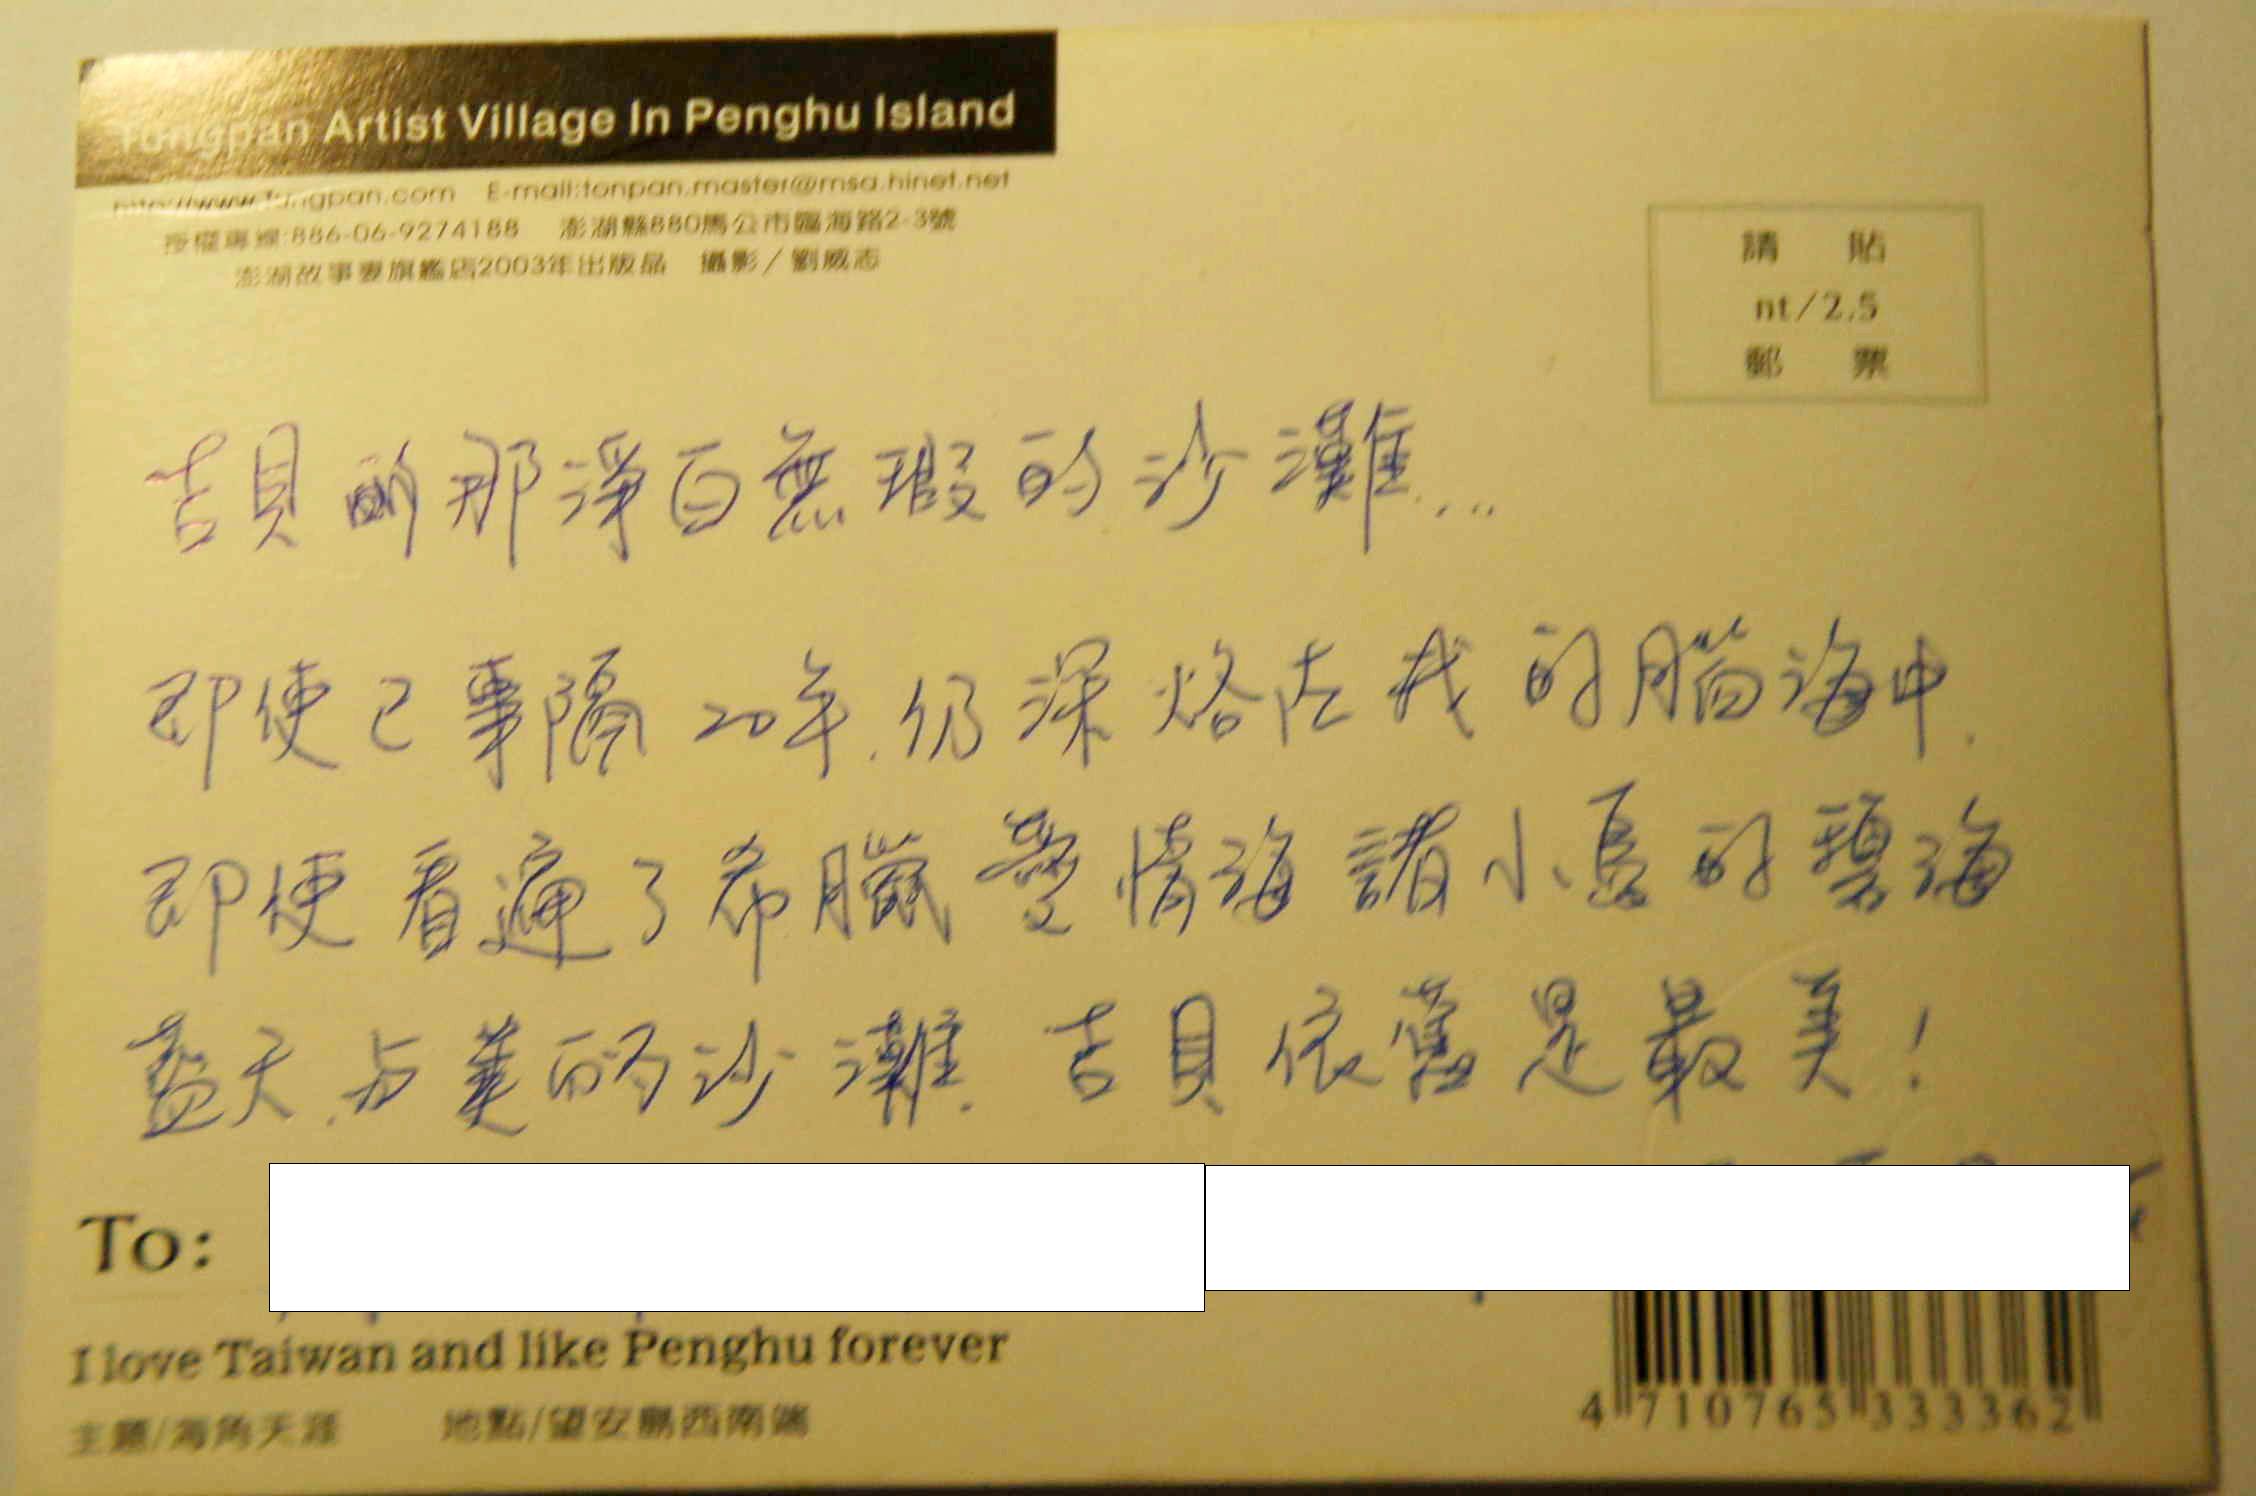 Tungpan Artist Village In Penghu Island
http://www.tungpan.com E-mail:tonpan.master@msa.hinet.net
授權專線:886-06-9274188 澎湖縣880馬公市臨海路2-3號
澎湖故事妻旗艦店2003年出版品 攝影/劉威志
請 貼
nt/2.5
郵 票
吉貝的那淨白無瑕的沙灘...
即使已事隔20年,仍深烙在我的腦海中.
即使看遍了希臘愛情海諸小島的碧海
藍天,与美的沙灘.吉貝依舊是最美!
To:
I love Taiwan and like Penghu forever
主題/海角天涯 地點/望安島西南端
4 710765 333362